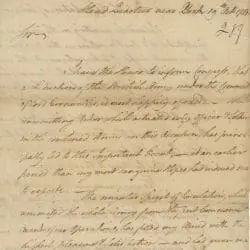 Head Quarters near York 19th Octr 1781
Sir,
I have the Honor to inform Congress, that
a Reduction of the British Army under the Command
of Lord Cornwallis, is most happily effected — The
unremitting Ardor which actuated every Officer & Soldier
in the combined Army on this Occasion, has princi-
pally led to this Important Event, at an earlier
period than my most sanguine Hopes had induced me
to expect. —
The singular Spirit of Emulation, which
animated the whole Army from the first Commencement
of our Operations, has filled my Mind with the
highest pleasure & Satisfaction — and had given